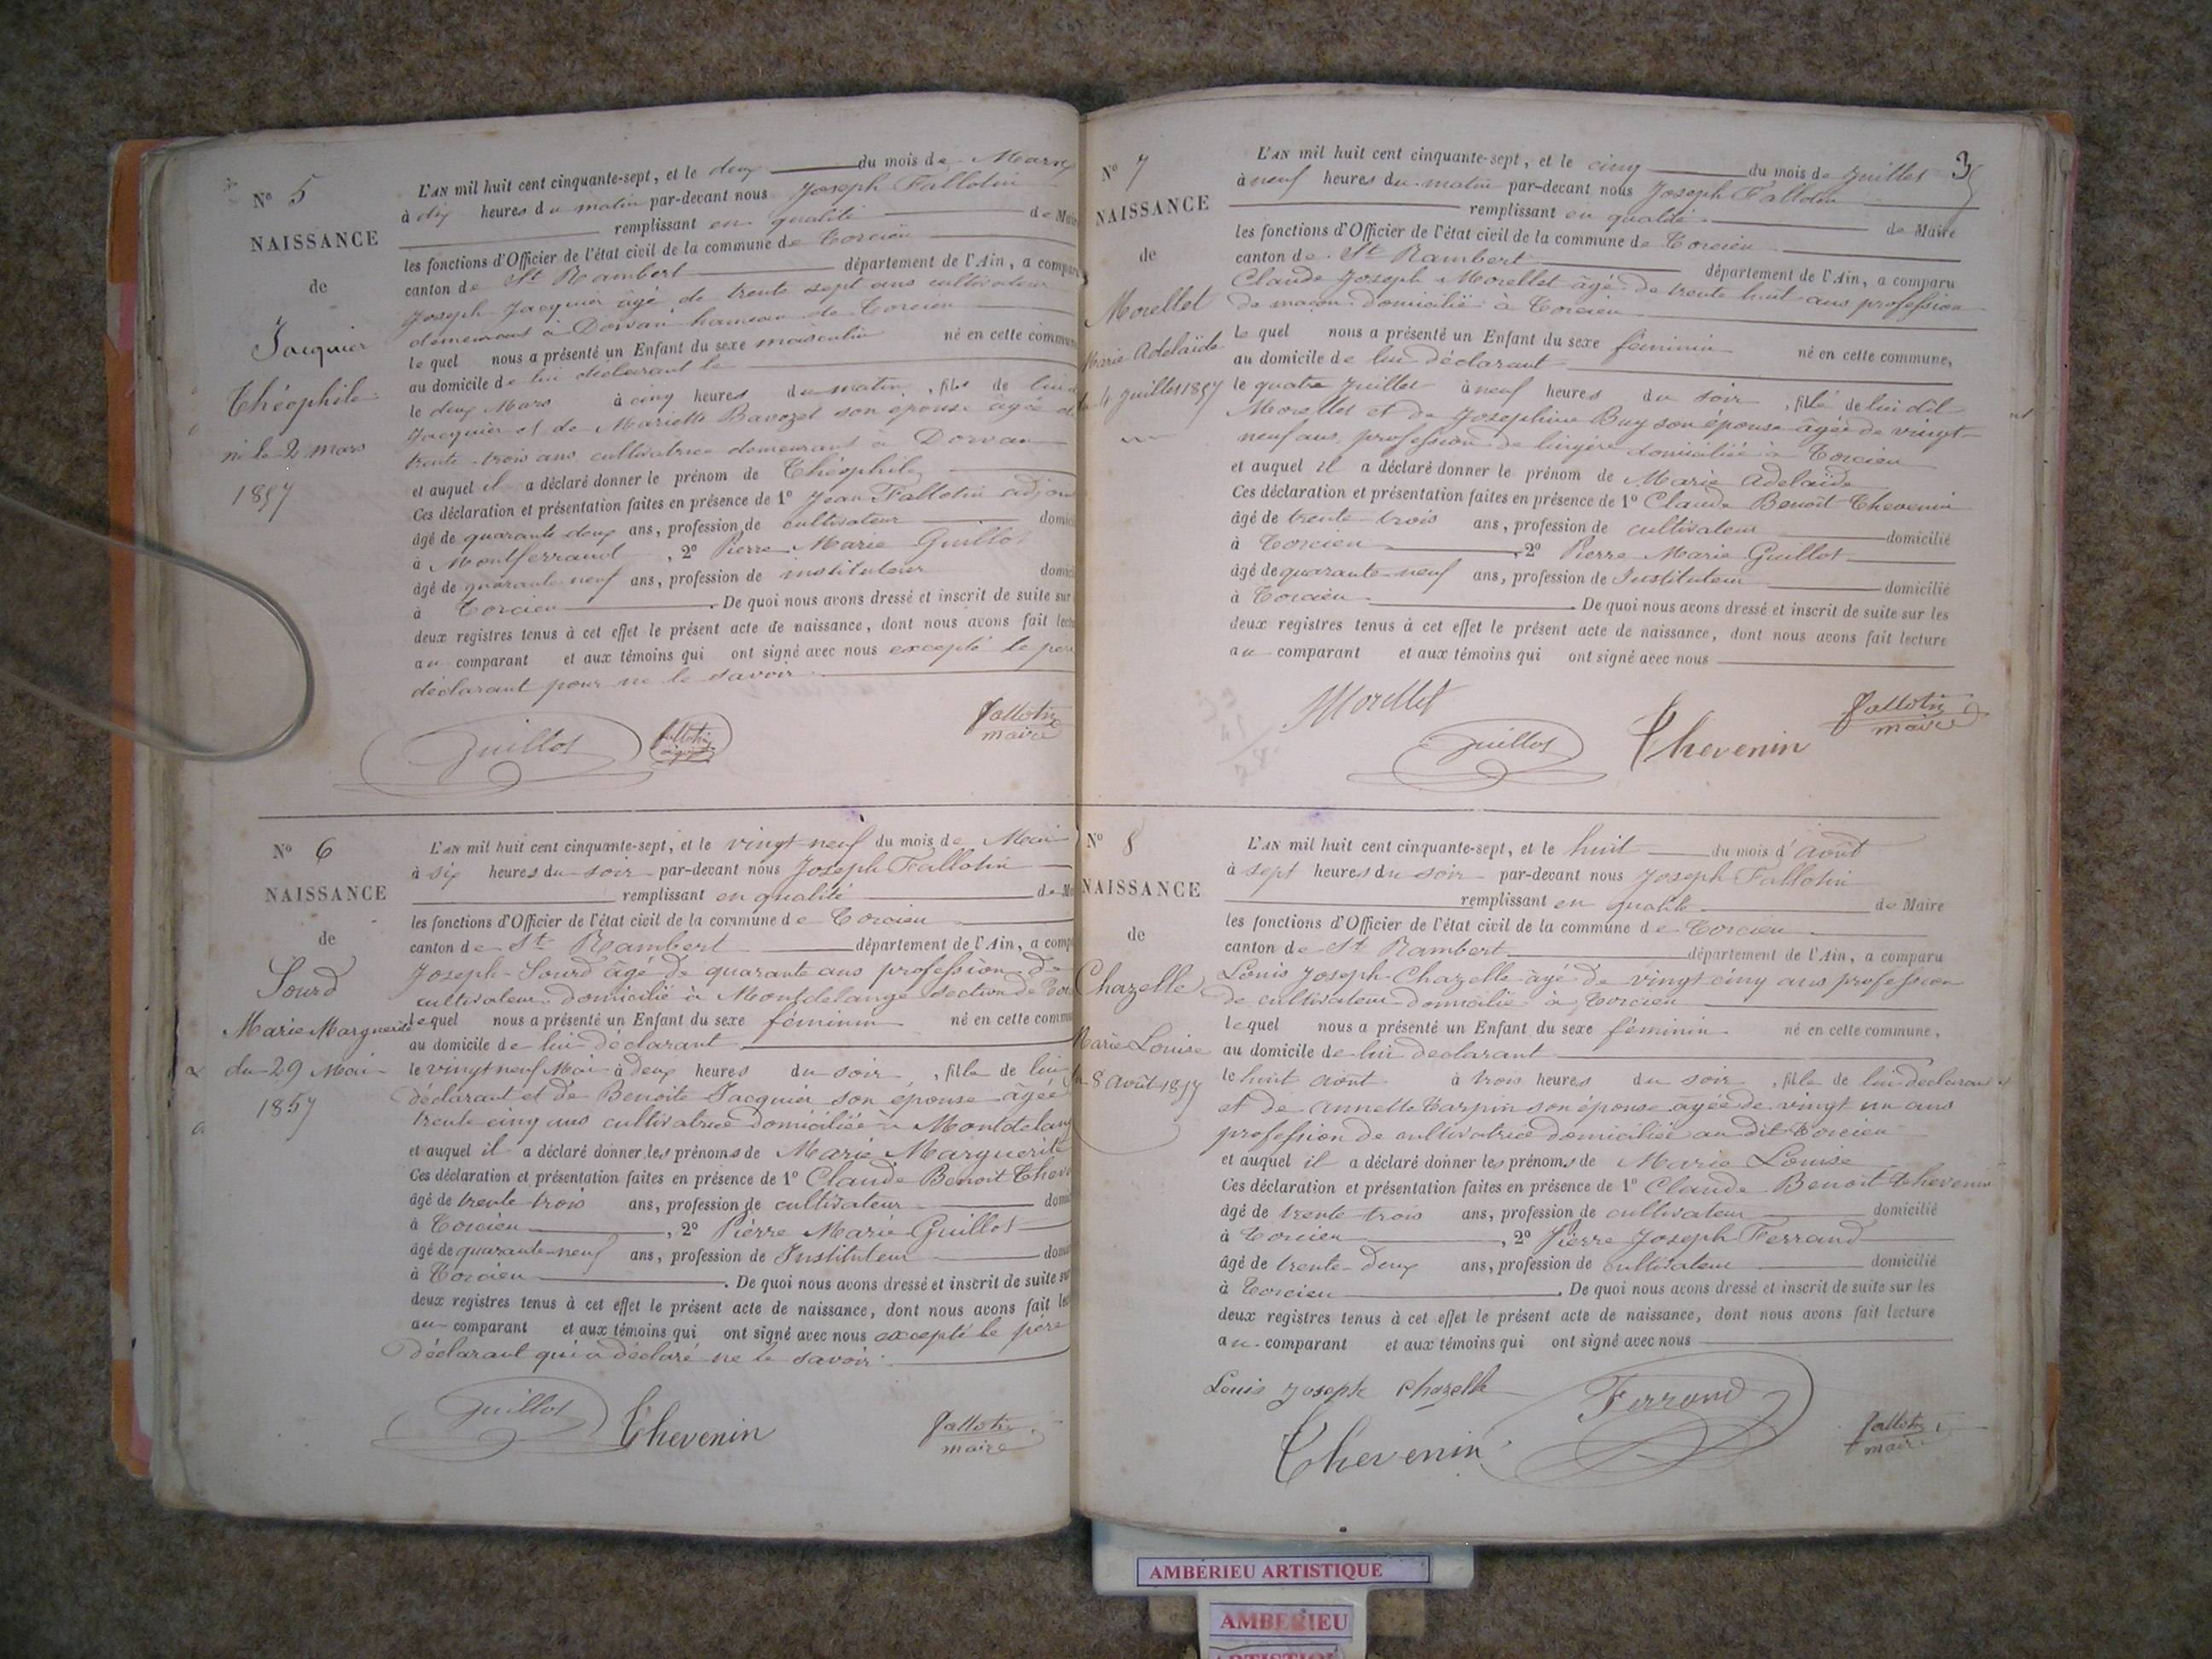 N° 5
NAISSANCE
de
Jacquier
Théophile
né le 2 mars
1857
L'AN mil huit cent cinquante-sept, et le deux du mois de Mars
à dix heures du matin par-devant nous Joseph Fallotin
remplissant en qualité de Maire
les fonctions d'Officier de l'état civil de la commune de Torcieu
canton de St Rambert département de l'Ain, a comparu
Joseph Jacquier âgé de trente sept ans cultivateur
demeurant à Dorvan hameau de Torcieu
le quel nous a présenté un Enfant du sexe masculin né en cette commune
au domicile de lui déclarant le
le deux Mars à cinq heures du matin, fils de lui
Jacquier et de Mariette Bavozet son épouse âgée de
trente-trois ans cultivatrice demeurant à Dorvan
et auquel il a déclaré donner le prénom de Théophile
Ces déclaration et présentation faites en présence de 1° Jean Fallotin adjoint
âgé de quarante deux ans, profession de cultivateur domici
à Montferrand, 2° Pierre Marie Guillot
âgé de quarante neuf ans, profession de instituteur domici
à Torcieu. De quoi nous avons dressé et inscrit de suite sur
deux registres tenus à cet effet le présent acte de naissance, dont nous avons fait lectu
au comparant et aux témoins qui ont signé avec nous excepté le père
déclarant pour ne le savoir.
Guillot Fallotin adjoint Fallotin
maire
N° 6
NAISSANCE
de
Sourd
Marie Marguerite
du 29 Mai
1857
L'AN mil huit cent cinquante-sept, et le vingt-neuf du mois de Mai
à six heures du soir par-devant nous Joseph Fallotin
remplissant en qualité de Ma
les fonctions d'Officier de l'état civil de la commune de Torcieu
canton de St Rambert département de l'Ain, a comp
Joseph Sourd âgé de quarante ans profession de
cultivateur domicilié à Montdelange section de Tor
lequel nous a présenté un Enfant du sexe féminin né en cette commu
au domicile de lui déclarant
le vingt neuf Mai à deux heures du soir, fille de lui
déclarant et de Benoite Jacquier son épouse âgée
trente cinq ans cultivatrice domiciliée à Montdelang
et auquel il a déclaré donner les prénoms de Marie Marguerite
Ces déclaration et présentation faites en présence de 1° Claude Benoit Theve
âgé de trente trois ans, profession de cultivateur domic
à Torcieu, 2° Pierre Marie Guillot
âgé de quarante-neuf ans, profession de Instituteur domi
à Torcieu. De quoi nous avons dressé et inscrit de suite sur
deux registres tenus à cet effet le présent acte de naissance, dont nous avons fait lec
au comparant et aux témoins qui ont signé avec nous excepté le père
déclarant qui a déclaré ne le savoir.
Guillot Thevenin Fallotin
maire
3
N° 7
NAISSANCE
de
Morellet
Marie Adelaïde
4 Juillet 1857
L'AN mil huit cent cinquante-sept, et le cinq du mois de Juillet
à neuf heures du matin par-devant nous Joseph Fallotin
remplissant en qualité de Maire
les fonctions d'Officier de l'état civil de la commune de Torcieu
canton de St Rambert département de l'Ain, a comparu
Claude Joseph Morellet âgé de trente huit ans profession
de maçon domicilié à Torcieu
le quel nous a présenté un Enfant du sexe féminin né en cette commune,
au domicile de lui déclarant
le quatre Juillet à neuf heures du soir, fille de lui dit
Morellet et de Josephine Buy son épouse âgée de vingt-
neuf ans, profession de lingère domiciliée à Torcieu
et auquel il a déclaré donner le prénom de Marie Adelaïde
Ces déclaration et présentation faites en présence de 1° Claude Benoit Thevenin
âgé de trente-trois ans, profession de cultivateur domicilié
à Torcieu, 2° Pierre Marie Guillot
âgé de quarante-neuf ans, profession de Instituteur domicilié
à Torcieu. De quoi nous avons dressé et inscrit de suite sur les
deux registres tenus à cet effet le présent acte de naissance, dont nous avons fait lecture
au comparant et aux témoins qui ont signé avec nous
Morellet Guillot Thevenin Fallotin
maire
N° 8
NAISSANCE
de
Chazelle
Marie Louise
8 Août 1857
L'AN mil huit cent cinquante-sept, et le huit du mois d'août
à sept heures du soir par-devant nous Joseph Fallotin
remplissant en qualité de Maire
les fonctions d'Officier de l'état civil de la commune de Torcieu
canton de St Rambert département de l'Ain, a comparu
Louis Joseph Chazelle âgé de vingt cinq ans profession
de cultivateur domicilié à Torcieu
lequel nous a présenté un Enfant du sexe féminin né en cette commune,
au domicile de lui déclarant
le huit août à trois heures du soir, fille de lui déclarant
et de Annette Carpin son épouse âgée de vingt un ans
profession de cultivatrice domiciliée au dit Torcieu
et auquel il a déclaré donner les prénoms de Marie Louise
Ces déclaration et présentation faites en présence de 1° Claude Benoit Thevenin
âgé de trente trois ans, profession de cultivateur domicilié
à Torcieu, 2° Pierre Joseph Ferrand
âgé de trente-deux ans, profession de cultivateur domicilié
à Torcieu. De quoi nous avons dressé et inscrit de suite sur les
deux registres tenus à cet effet le présent acte de naissance, dont nous avons fait lecture
au comparant et aux témoins qui ont signé avec nous
Louis Joseph Chazelle Ferrand
Thevenin Fallotin
maire
AMBERIEU ARTISTIQUE
AMBERIEU
ARTISTIQUE